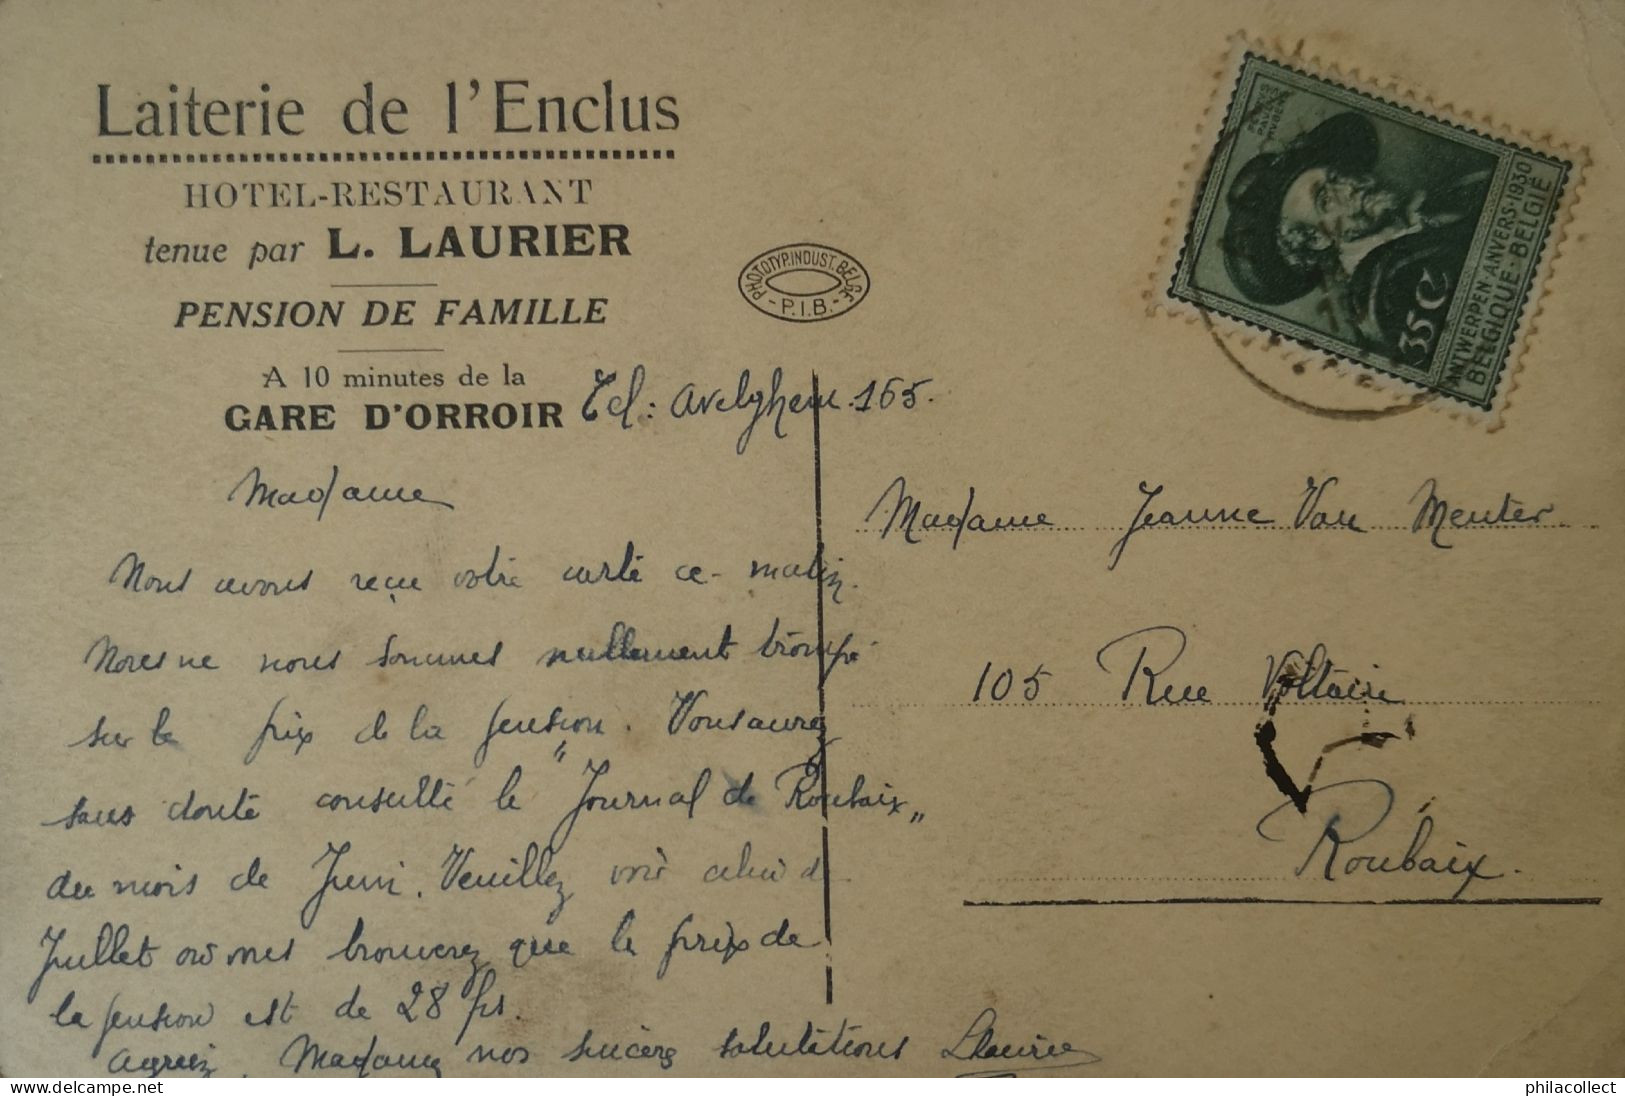 Laiterie de l'Enclus
HOTEL-RESTAURANT
tenue par L. LAURIER
PENSION DE FAMILLE
A 10 minutes de la
GARE D'ORROIR
Tel: Avelghem. 165.
PHOTOTYP. INDUST. BELGE
- P.I.B. -
PETRUS PAVLVS RVBENS
35 C
ANTWERPEN·ANVERS·1930
BELGIQUE·BELGIË
Madame
Nous avons reçu votre carte ce matin.
Nous ne nous sommes nullement trompé
sur le prix de la pension. Vous aurez
sans doute consulté le "Journal de Roubaix"
du mois de Juin. Veuillez voir celui de
Juillet où vous trouverez que le prix de
la pension est de 28 frs.
Agréez, Madame, nos sincères salutations
LLaurier
Madame Jeanne Van Meuter
105 Rue Voltaire
Roubaix.
philacollect